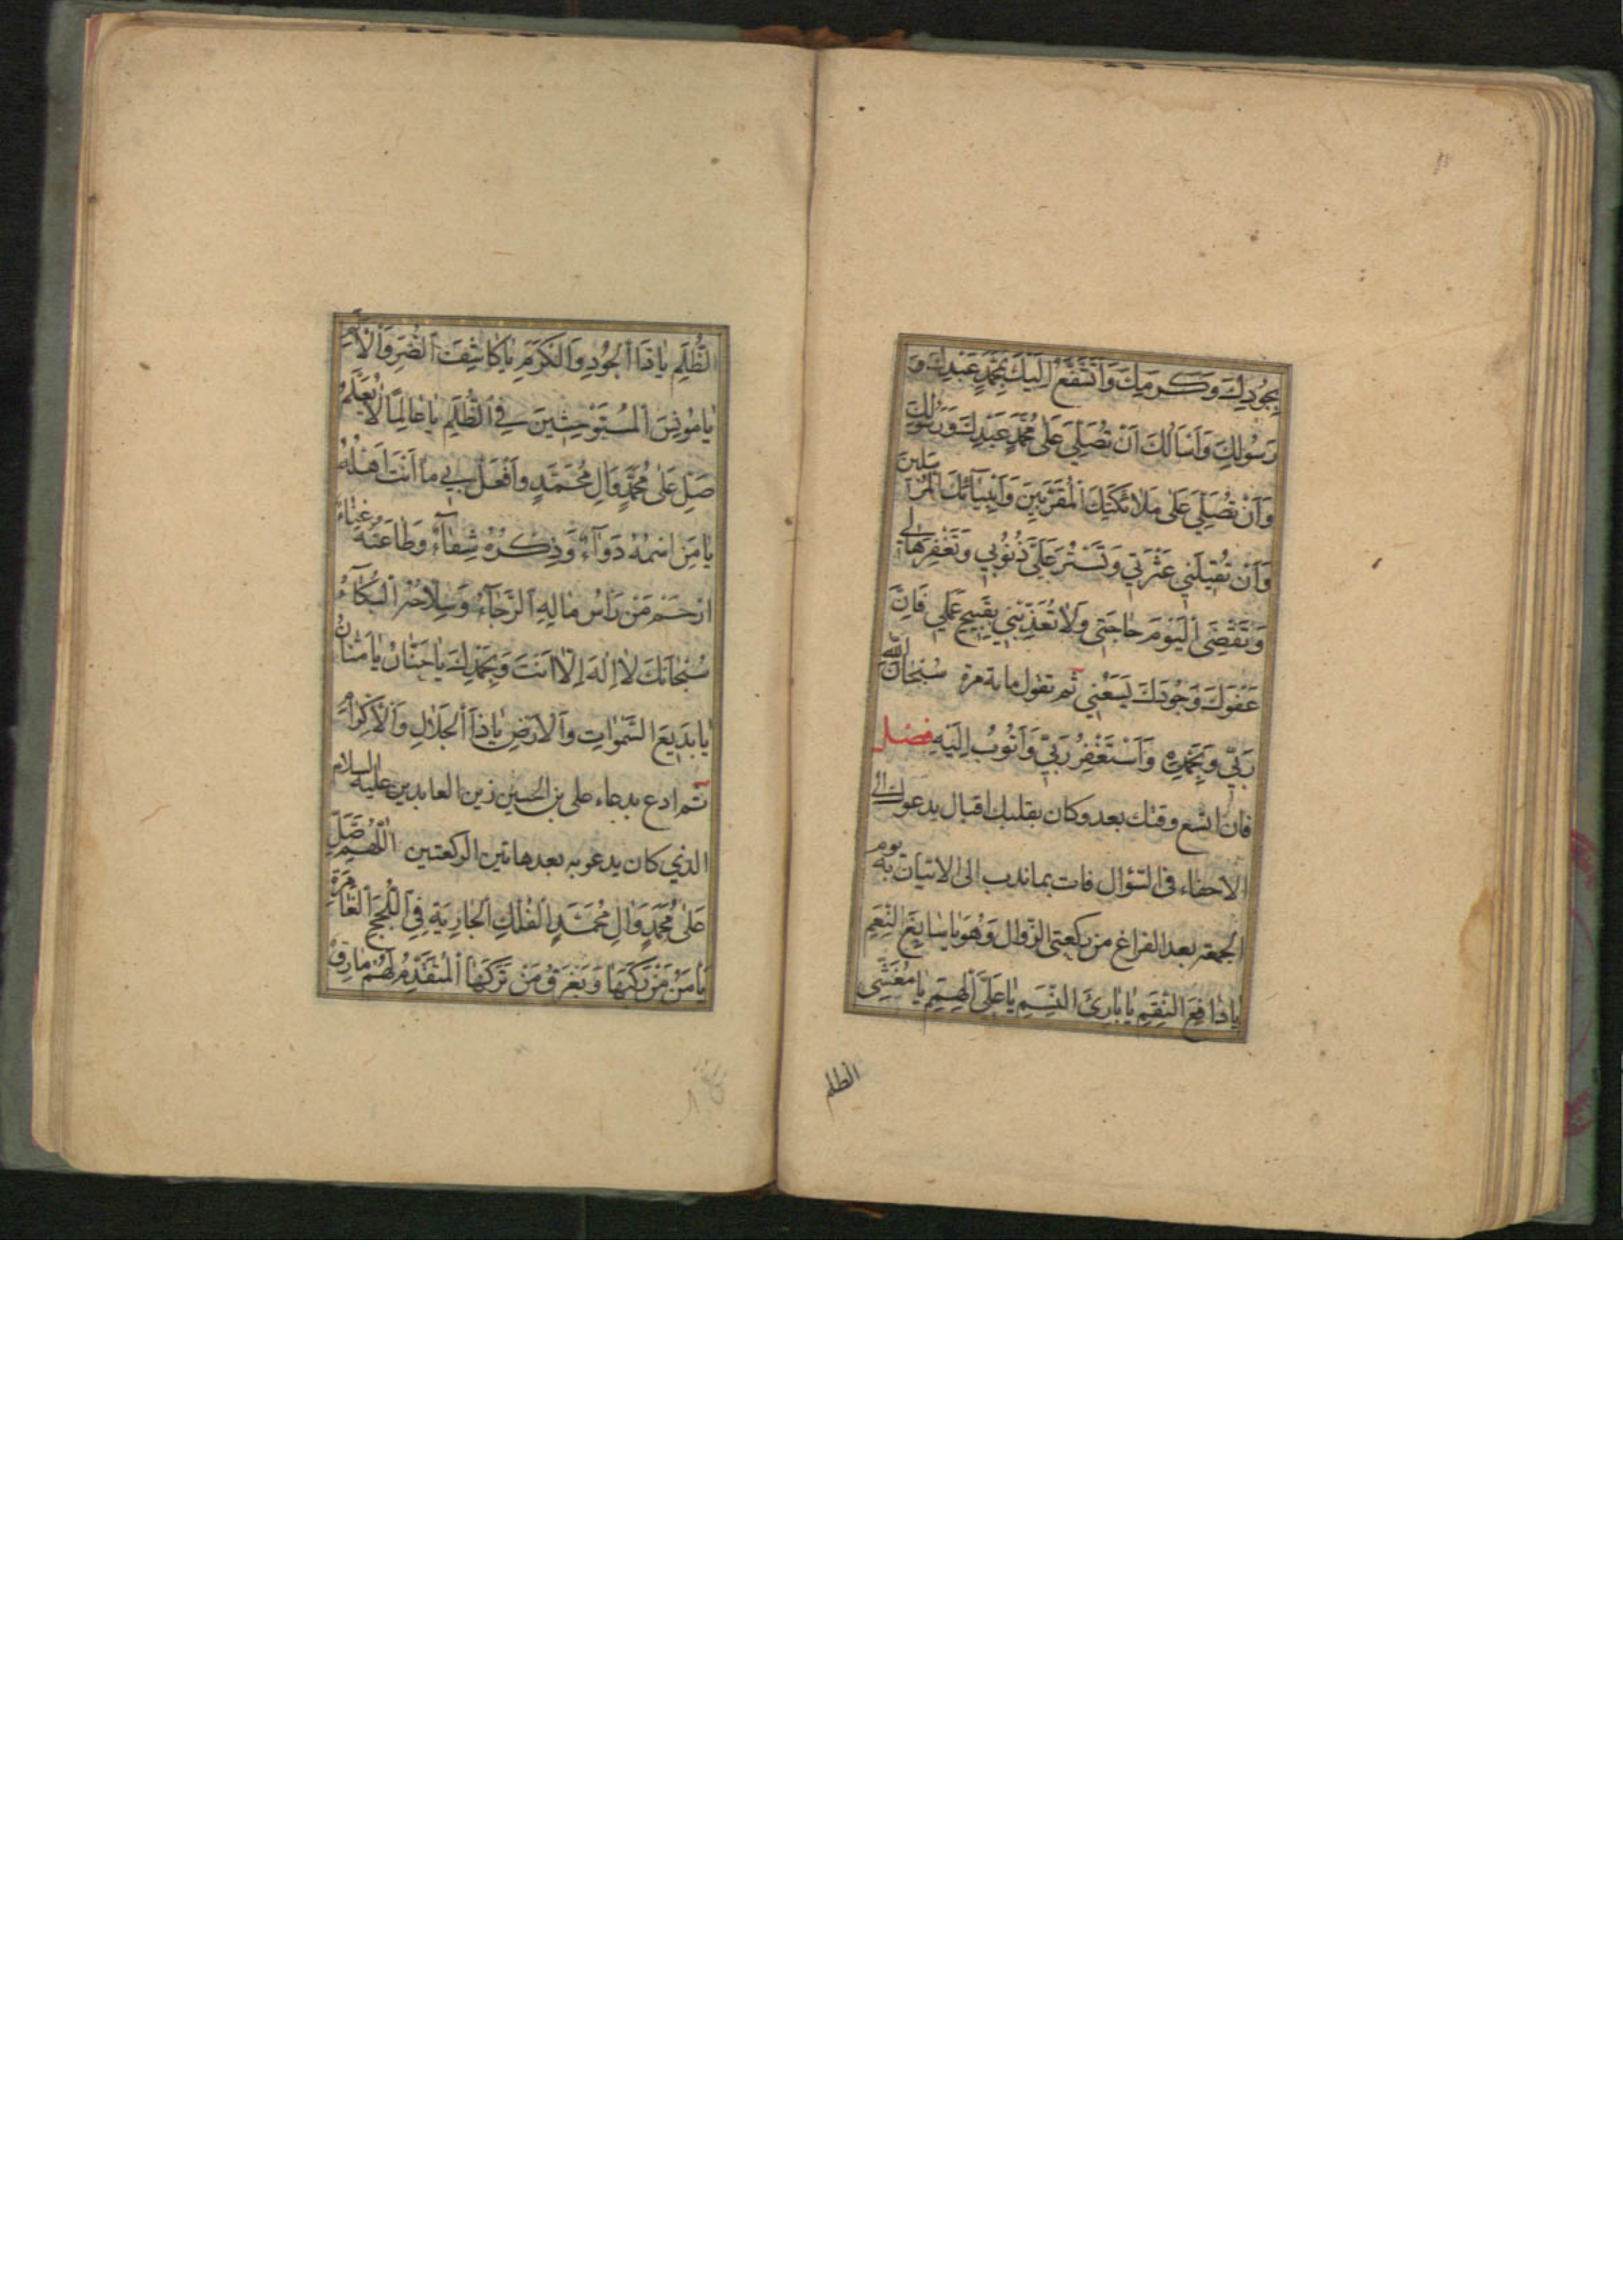 بِجُودِكَ وَكَرَمِكَ وَاَتَشَفَّعُ اِلَيْكَ بِمُحَمَّدٍ عَبْدِكَ وَ
رَسُولِكَ وَاَسْاَلُكَ اَنْ تُصَلِّيَ عَلٰى مُحَمَّدٍ عَبْدِكَ وَرَسُولِكَ
وَاَنْ تُصَلِّيَ عَلٰى مَلٰائِكَتِكَ الْمُقَرَّبِينَ وَاَنْبِيٰآئِكَ الْمُرْسَلِينَ
وَاَنْ تُقِيلَنِي عَثْرَتِي وَتَسْتُرَ عَلَيَّ ذُنُوبِي وَتَغْفِرَهٰا لِي
وَتَقْضِيَ الْيَوْمَ حٰاجَتِي وَلٰا تُعَذِّبَنِي بِقَبِيحِ عَمَلِي فَاِنَّ
عَفْوَكَ وَجُودَكَ يَسَعُنِي ثم تقول ماية مرة سُبْحٰانَ اللهِ
رَبِّي وَبِحَمْدِهِ وَاَسْتَغْفِرُ رَبِّي وَاَتُوبُ اِلَيْهِ فصل
فان اتسع وقتك بعد وكان بقلبك اقبال يدعوك الى
الاحفاء فى السؤال فات بما ندب الى الاتيان به يوم
الجمعة بعد الفراغ من ركعتى الزوال وَهُوَ يٰا سٰابِغَ النِّعَمِ
يٰا دٰافِعَ النِّقَمِ يٰا بٰارِئَ النَّسَمِ يٰا عَلِيَّ الْهِمَمِ يٰا مُغَشِّيَ
الظلم
الظُّلَمِ يٰا ذَا الْجُودِ وَالْكَرَمِ يٰا كٰاشِفَ الضُّرِّ وَالْاَلَمِ
يٰا مُونِسَ الْمُسْتَوْحِشِينَ فِي الظُّلَمِ يٰا عٰالِمًا لٰا يُعَلَّمُ
صَلِّ عَلٰى مُحَمَّدٍ وَاٰلِ مُحَمَّدٍ وَافْعَلْ بِي مٰا اَنْتَ اَهْلُهُ
يٰا مَنِ اسْمُهُ دَوٰآءٌ وَذِكْرُهُ شِفٰآءٌ وَطٰاعَتُهُ غِنٰاءٌ
اِرْحَمْ مَنْ رَأْسُ مٰالِهِ الرَّجٰآءُ وَسِلٰاحُهُ الْبُكٰآءُ
سُبْحٰانَكَ لٰا اِلٰهَ اِلّٰا اَنْتَ وَبِحَمْدِكَ يٰا حَنّٰانُ يٰا مَنّٰانُ
يٰا بَدِيعَ السَّمٰوٰاتِ وَالْاَرْضِ يٰا ذَا الْجَلٰالِ وَالْاِكْرٰامِ
ثم ادع بدعاء على بن الحسين زين العابدين عليه السلام
الذي كان يدعو به بعد هاتين الركعتين اَللّٰهُمَّ صَلِّ
عَلٰى مُحَمَّدٍ وَاٰلِ مُحَمَّدٍ الْفُلْكِ الْجٰارِيَةِ فِي اللُّجَجِ الْغٰامِرَةِ
يَأْمَنُ مَنْ رَكِبَهٰا وَيَغْرَقُ مَنْ تَرَكَهٰا الْمُتَقَدِّمُ لَهُمْ مٰارِقٌ